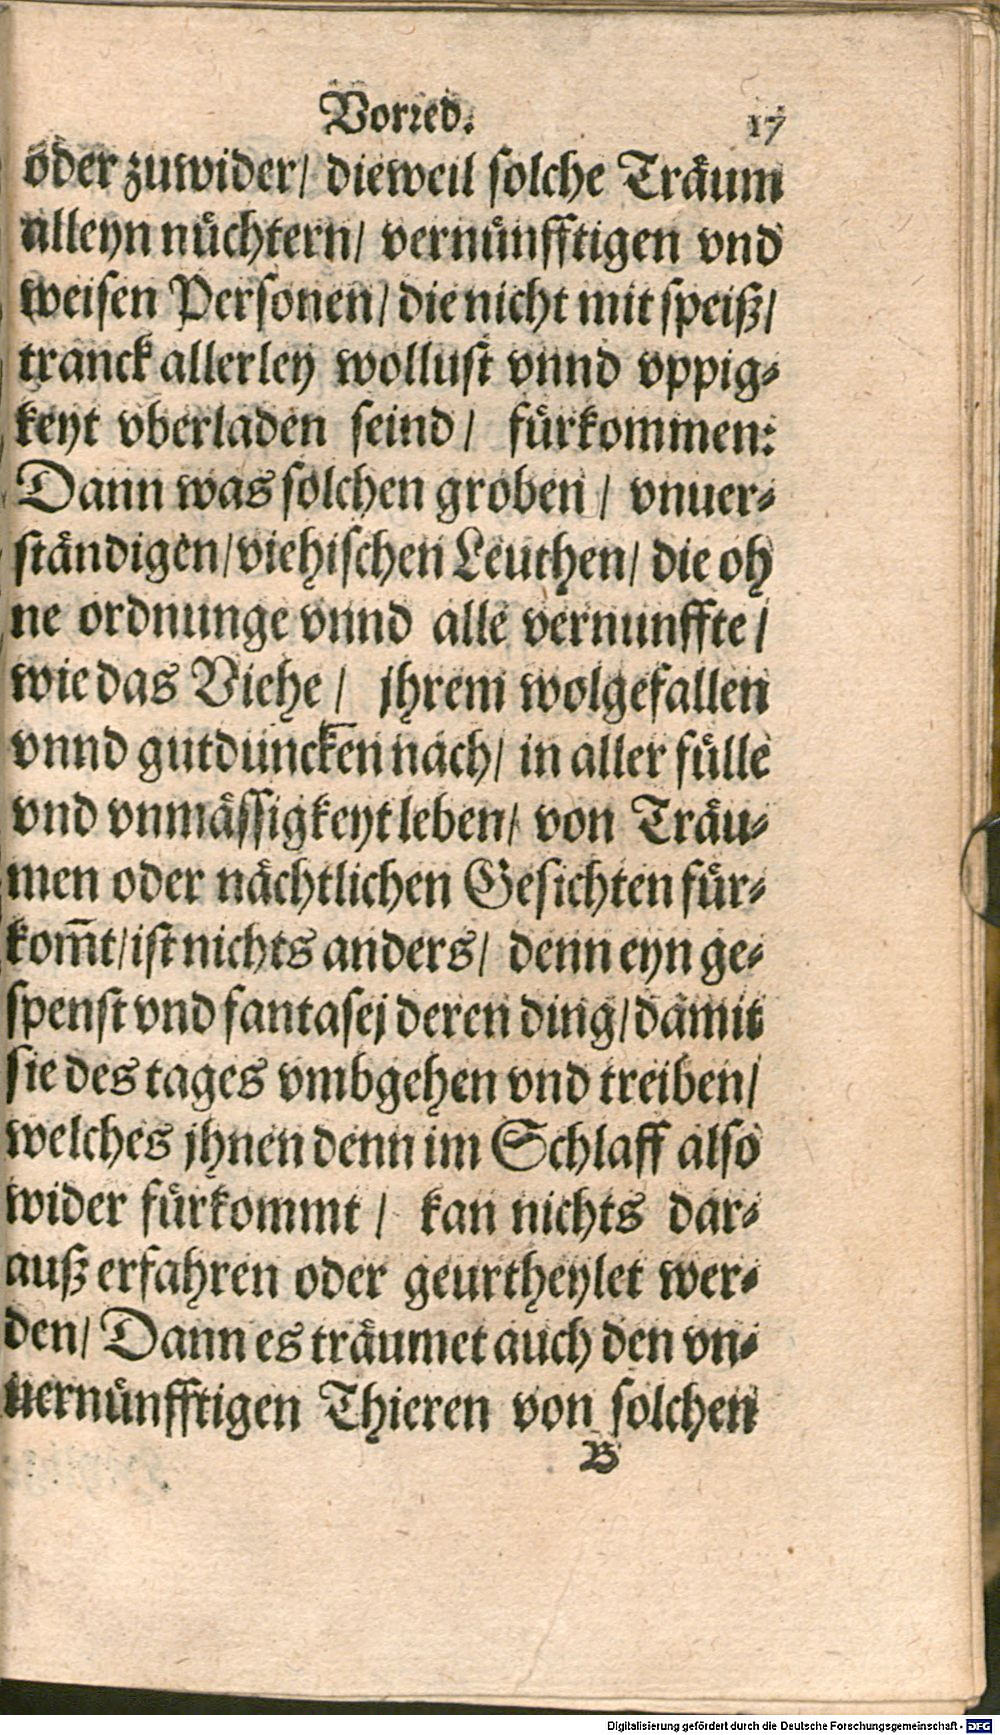 Vorred.
17
oder zuwider/ dieweil solche Träum
alleyn nüchtern/ vernünfftigen vnd
weisen Personen/ die nicht mit speiß/
tranck allerley wollust vnnd vppig-
keyt vberladen seind/ fürkommen:
Dann was solchen groben/ vnuer-
ständigen/ viehischen Leuthen/ die oh
ne ordnunge vnnd alle vernunffte/
wie das Viehe/ jhrem wolgefallen
vnnd gutduncken nach/ in aller fülle
vnd vnmässigkeyt leben/ von Träu-
men oder nächtlichen Gesichten für-
kom̄t/ ist nichts anders/ denn eyn ge-
spenst vnd fantasej deren ding/ damit
sie des tages vmbgehen vnd treiben/
welches jhnen denn im Schlaff also
wider fürkommt/ kan nichts dar-
auß erfahren oder geurtheylet wer-
den/ Dann es träumet auch den vn-
uernünfftigen Thieren von solchen
B
Digitalisierung gefördert durch die Deutsche Forschungsgemeinschaft - DFG